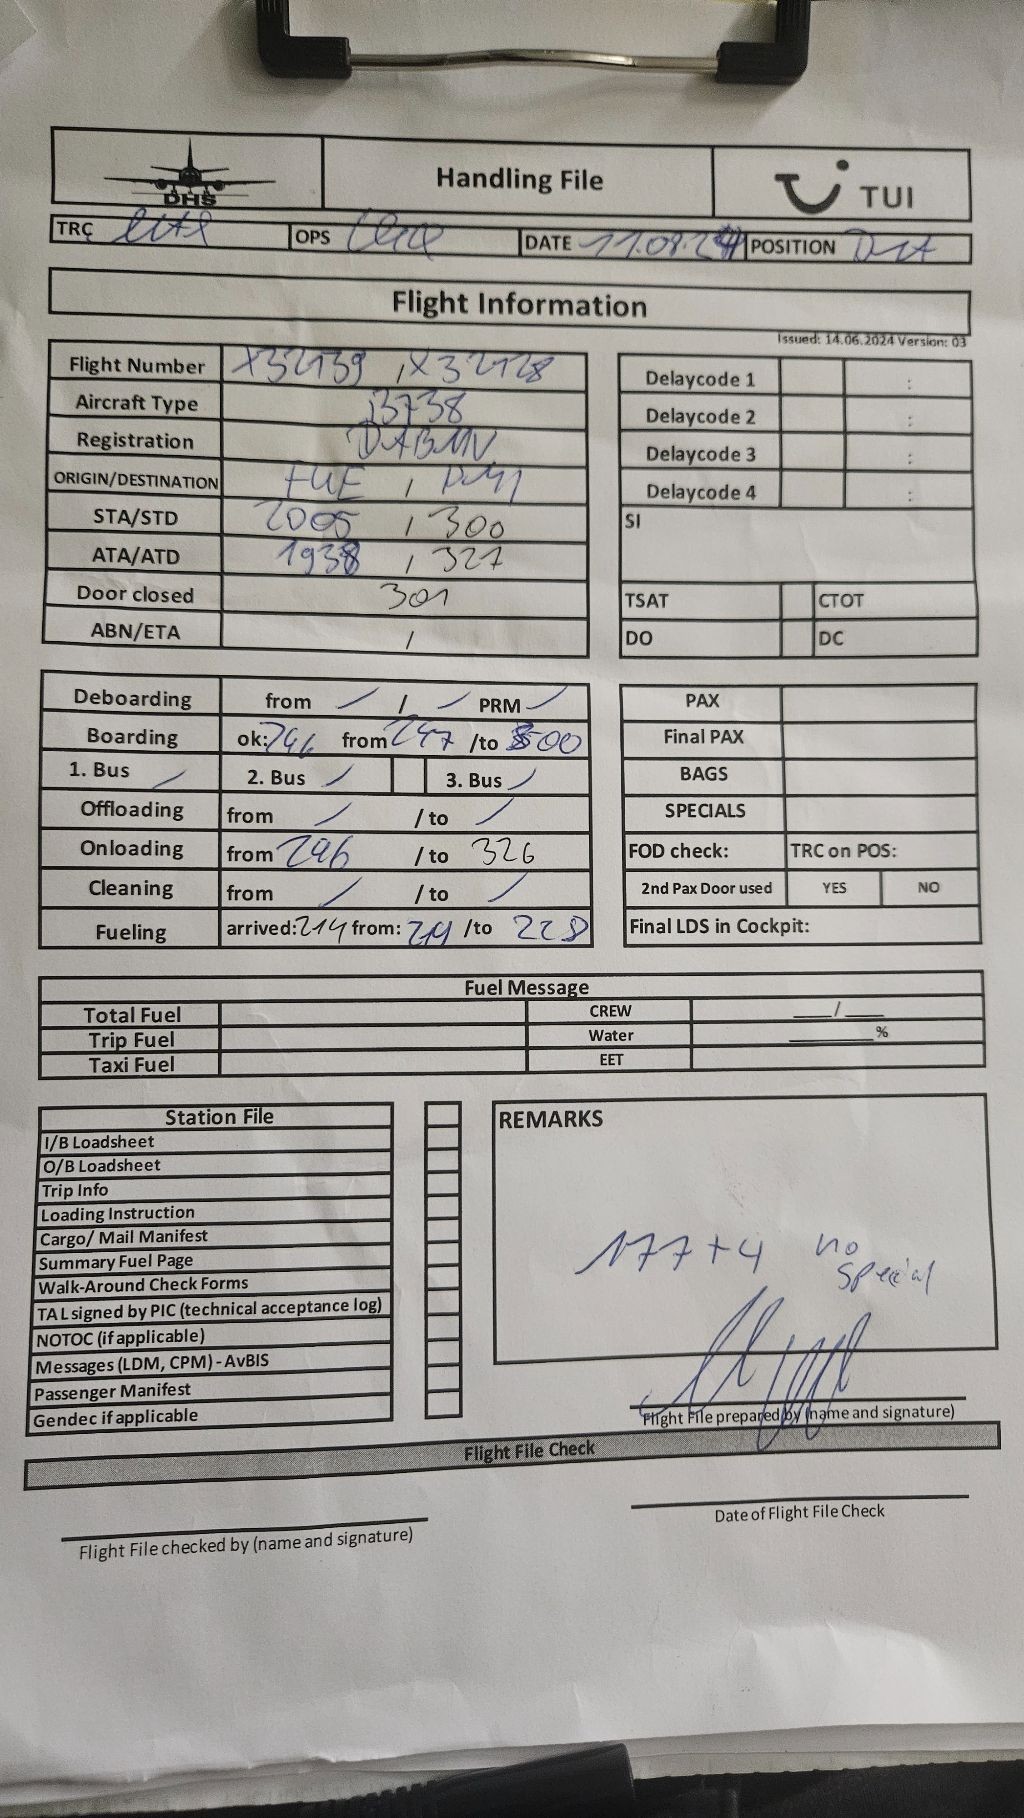 DHS
Handling File
TUI
TRC
OPS
DATE 11.08.24
POSITION
Flight Information
Issued: 14.06.2024 Version: 03
Flight Number X32139 / X32128
Aircraft Type B738
Registration DABMV
ORIGIN/DESTINATION FUE /
STA/STD 2005 / 300
ATA/ATD 1938 / 327
Door closed 301
ABN/ETA /
Delaycode 1 :
Delaycode 2 :
Delaycode 3 :
Delaycode 4 :
SI
TSAT CTOT
DO DC
Deboarding from / / / PRM /
Boarding ok: 246 from 247 /to 300
1. Bus / 2. Bus / 3. Bus /
Offloading from / / to /
Onloading from 246 / to 326
Cleaning from / / to /
Fueling arrived: 214 from: 214 /to 228
PAX
Final PAX
BAGS
SPECIALS
FOD check: TRC on POS:
2nd Pax Door used YES NO
Final LDS in Cockpit:
Fuel Message
Total Fuel CREW ___/___
Trip Fuel Water ______%
Taxi Fuel EET
Station File
I/B Loadsheet
O/B Loadsheet
Trip Info
Loading Instruction
Cargo/ Mail Manifest
Summary Fuel Page
Walk-Around Check Forms
TAL signed by PIC (technical acceptance log)
NOTOC (if applicable)
Messages (LDM, CPM) - AvBIS
Passenger Manifest
Gendec if applicable
REMARKS
177+4 no
special
Flight File prepared by (name and signature)
Flight File Check
Flight File checked by (name and signature)
Date of Flight File Check